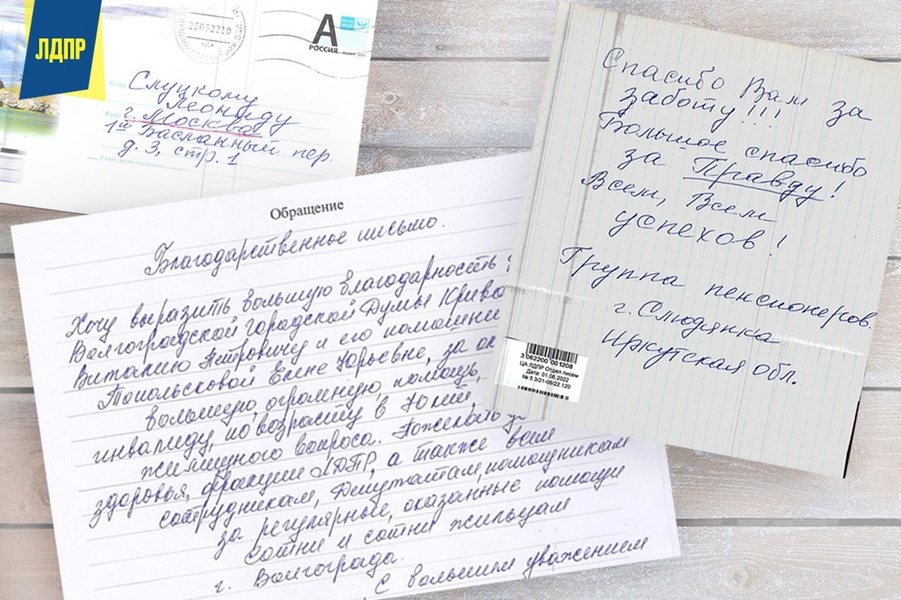 ЛДПР
25052210
А
РОССИЯ
Кому Слуцкому
Леониду
Куда г. Москва
1й Басманный пер.
д. 3, стр. 1
Спасибо Вам за
заботу!!!
Большое спасибо
за Правду!
Всем, Всем
успехов!
Группа пенсионеров.
г. Слюдянка
Иркутская обл.
3 062200 001208
ЦА ЛДПР Отдел писем
Дата: 01.06.2022
№ 5.3/21-06/22.120
Обращение
Благодарственное письмо.
Хочу выразить большую благодарность
Волгоградской городской Думы
Виталию Петровичу и его
Топольсковой Елене Юрьевне, за
большую, огромную помощь,
инвалиду по возрасту в
жилищного вопроса.
здоровья, фракции ЛДПР, а также всем
сотрудникам, Депутатам, помощникам
за регулярные, оказанные помощи
сотни и сотни жильцам
г. Волгограда.
С большим уважением